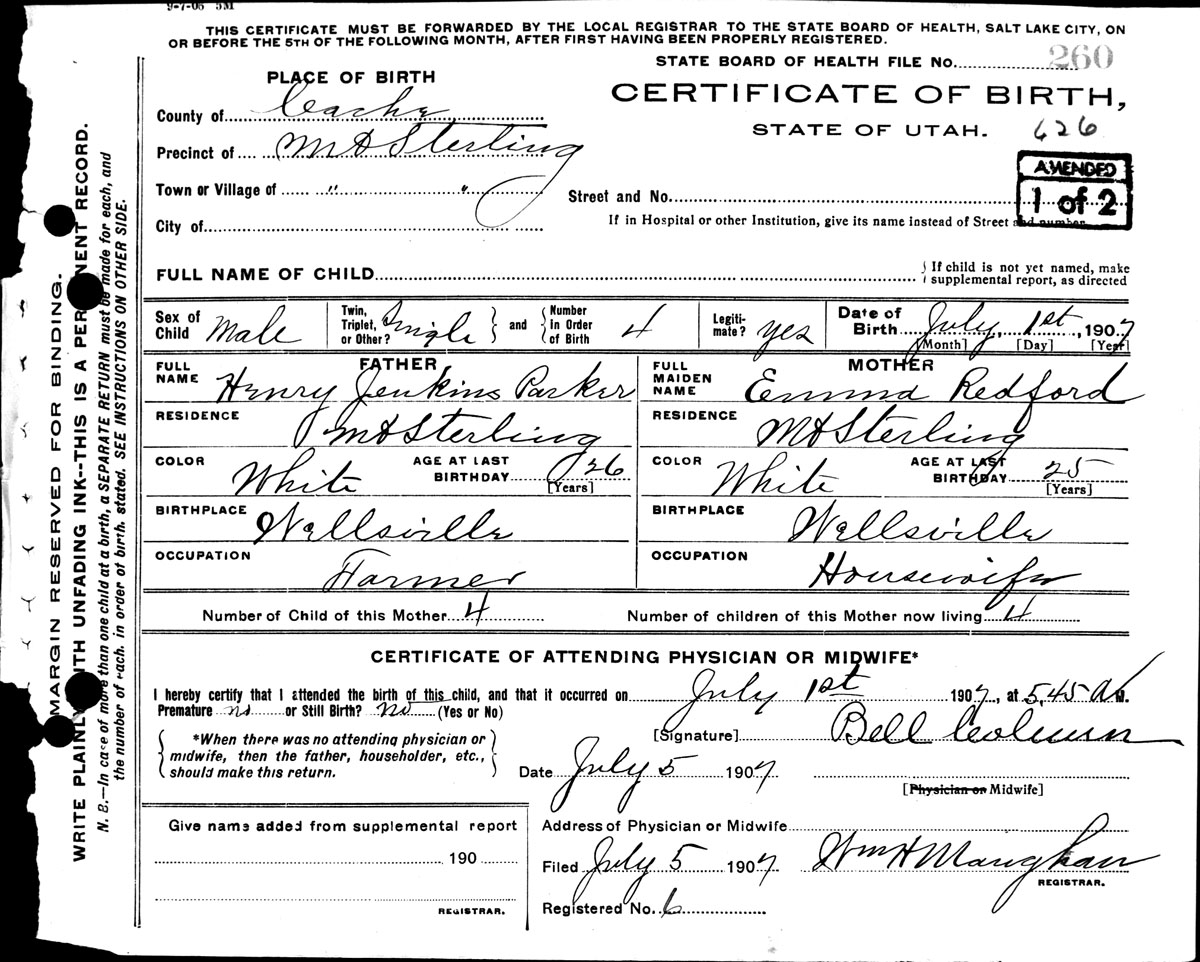 9-7-06 5M
THIS CERTIFICATE MUST BE FORWARDED BY THE LOCAL REGISTRAR TO THE STATE BOARD OF HEALTH, SALT LAKE CITY, ON
OR BEFORE THE 5TH OF THE FOLLOWING MONTH, AFTER FIRST HAVING BEEN PROPERLY REGISTERED.
STATE BOARD OF HEALTH FILE No. 260
PLACE OF BIRTH
CERTIFICATE OF BIRTH,
STATE OF UTAH. 626
County of Cache
Precinct of Mt Sterling
Town or Village of " "
City of
Street and No.
If in Hospital or other Institution, give its name instead of Street and number.
AMENDED
1 of 2
FULL NAME OF CHILD
If child is not yet named, make
supplemental report, as directed
Sex of Child Male
Twin, Triplet, or Other? Single and Number In Order of Birth 4
Legitimate? yes
Date of Birth July, 1st, 1907
[Month] [Day] [Year]
FATHER
FULL NAME Henry Jenkins Parker
RESIDENCE Mt Sterling
COLOR White AGE AT LAST BIRTHDAY 26 [Years]
BIRTHPLACE Wellsville
OCCUPATION Farmer
MOTHER
FULL MAIDEN NAME Emma Redford
RESIDENCE Mt Sterling
COLOR White AGE AT LAST BIRTHDAY 25 [Years]
BIRTHPLACE Wellsville
OCCUPATION Housewife
Number of Child of this Mother 4 Number of children of this Mother now living 4
CERTIFICATE OF ATTENDING PHYSICIAN OR MIDWIFE*
I hereby certify that I attended the birth of this child, and that it occurred on July 1st 1907, at 5,45 A M.
Premature no or Still Birth? No (Yes or No)
*When there was no attending physician or
midwife, then the father, householder, etc.,
should make this return.
[Signature] Bell
Date July 5 1907
[Physician or Midwife]
Give name added from supplemental report
190
REGISTRAR.
Address of Physician or Midwife
Filed July 5 1907 Wm H Maughan
REGISTRAR.
Registered No. 6
MARGIN RESERVED FOR BINDING.
WRITE PLAINLY WITH UNFADING INK--THIS IS A PERMANENT RECORD.
N. B.—In case of more than one child at a birth, a SEPARATE RETURN must be made for each, and
the number of each, in order of birth, stated. SEE INSTRUCTIONS ON OTHER SIDE.